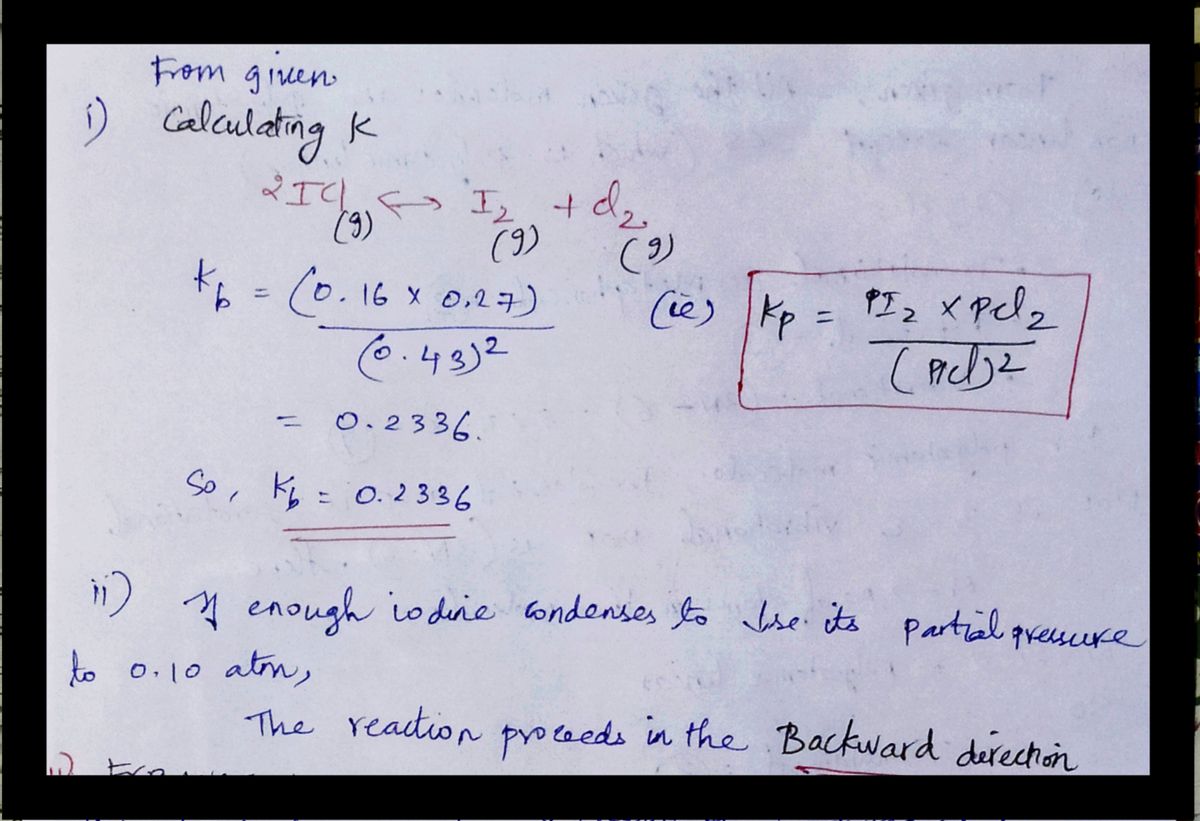 From given
i) Calculating K
2ICl(g) ↔ I2(g) + Cl2(g)
Kp = (0.16 x 0.27) / (0.43)2 (ie) Kp = PI2 x PCl2 / (PICl)2
= 0.2336.
So, Kp = 0.2336
ii) If enough iodine condenses to ↓se its partial pressure
to 0.10 atm,
The reaction proceeds in the Backward direction